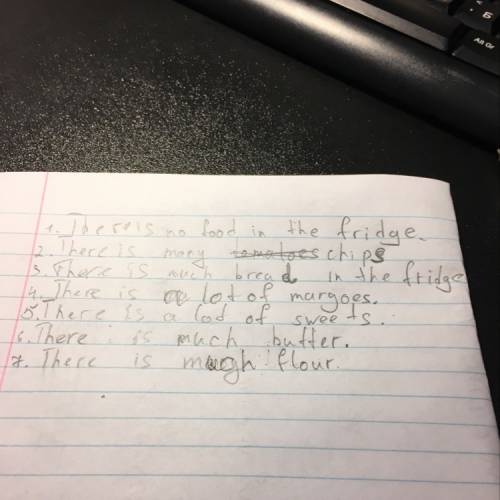 1. There is no food in the fridge.
2. There is many tomatoes chips
3. There is much bread in the fridge
4. There is a lot of margoes.
5. There is a lot of sweets.
6. There is much butter.
7. There is mugh flour.